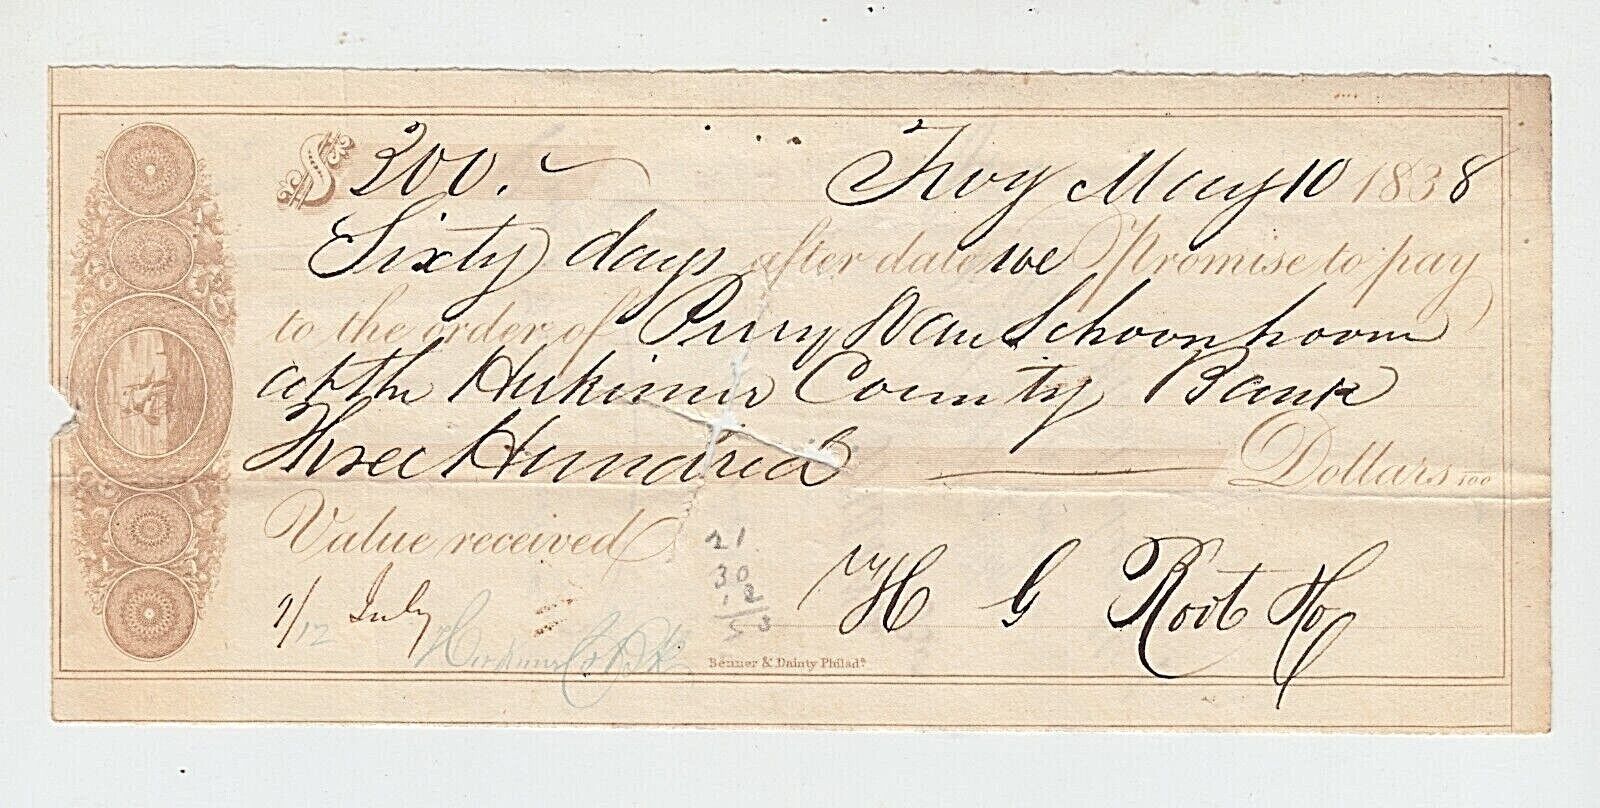 $300.
Troy May 10 1838
Sixty days after date we Promise to pay
to the order of Perry Van Schoonhoven
at the Herkimer County Bank
Three Hundred Dollars 100
Value received
21
30
12
H G Root & Co
9/12 July
Herkimer Co Bk
Benner & Dainty Philada.